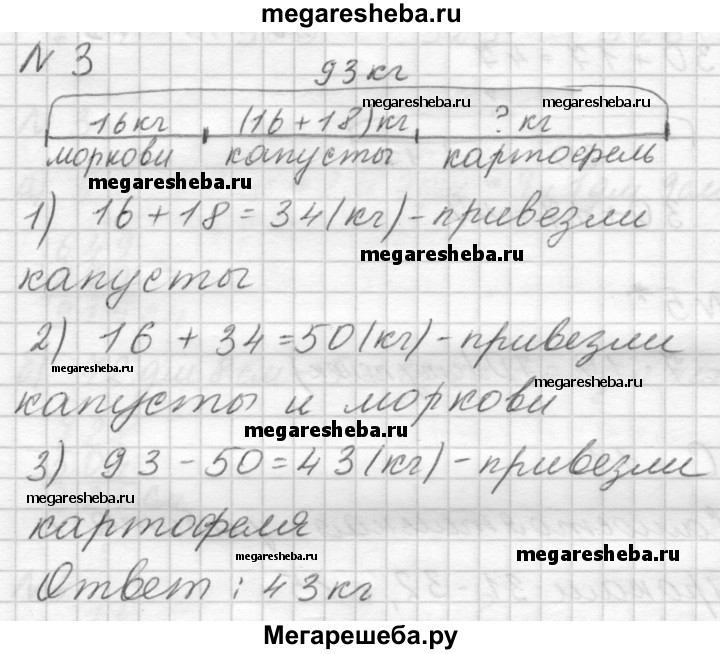 megaresheba.ru
N 3
93 кг
megaresheba.ru megaresheba.ru
16 кг (16 + 18) кг ? кг
моркови капусты картофель
megaresheba.ru
1) 16 + 18 = 34 (кг) - привезли
megaresheba.ru
капусты
2) 16 + 34 = 50 (кг) - привезли
megaresheba.ru megaresheba.ru
капусты и моркови
megaresheba.ru
3) 93 - 50 = 43 (кг) - привезли
megaresheba.ru
картофеля
megaresheba.ru megaresheba.ru
Ответ : 43 кг
Мегарешеба.ру